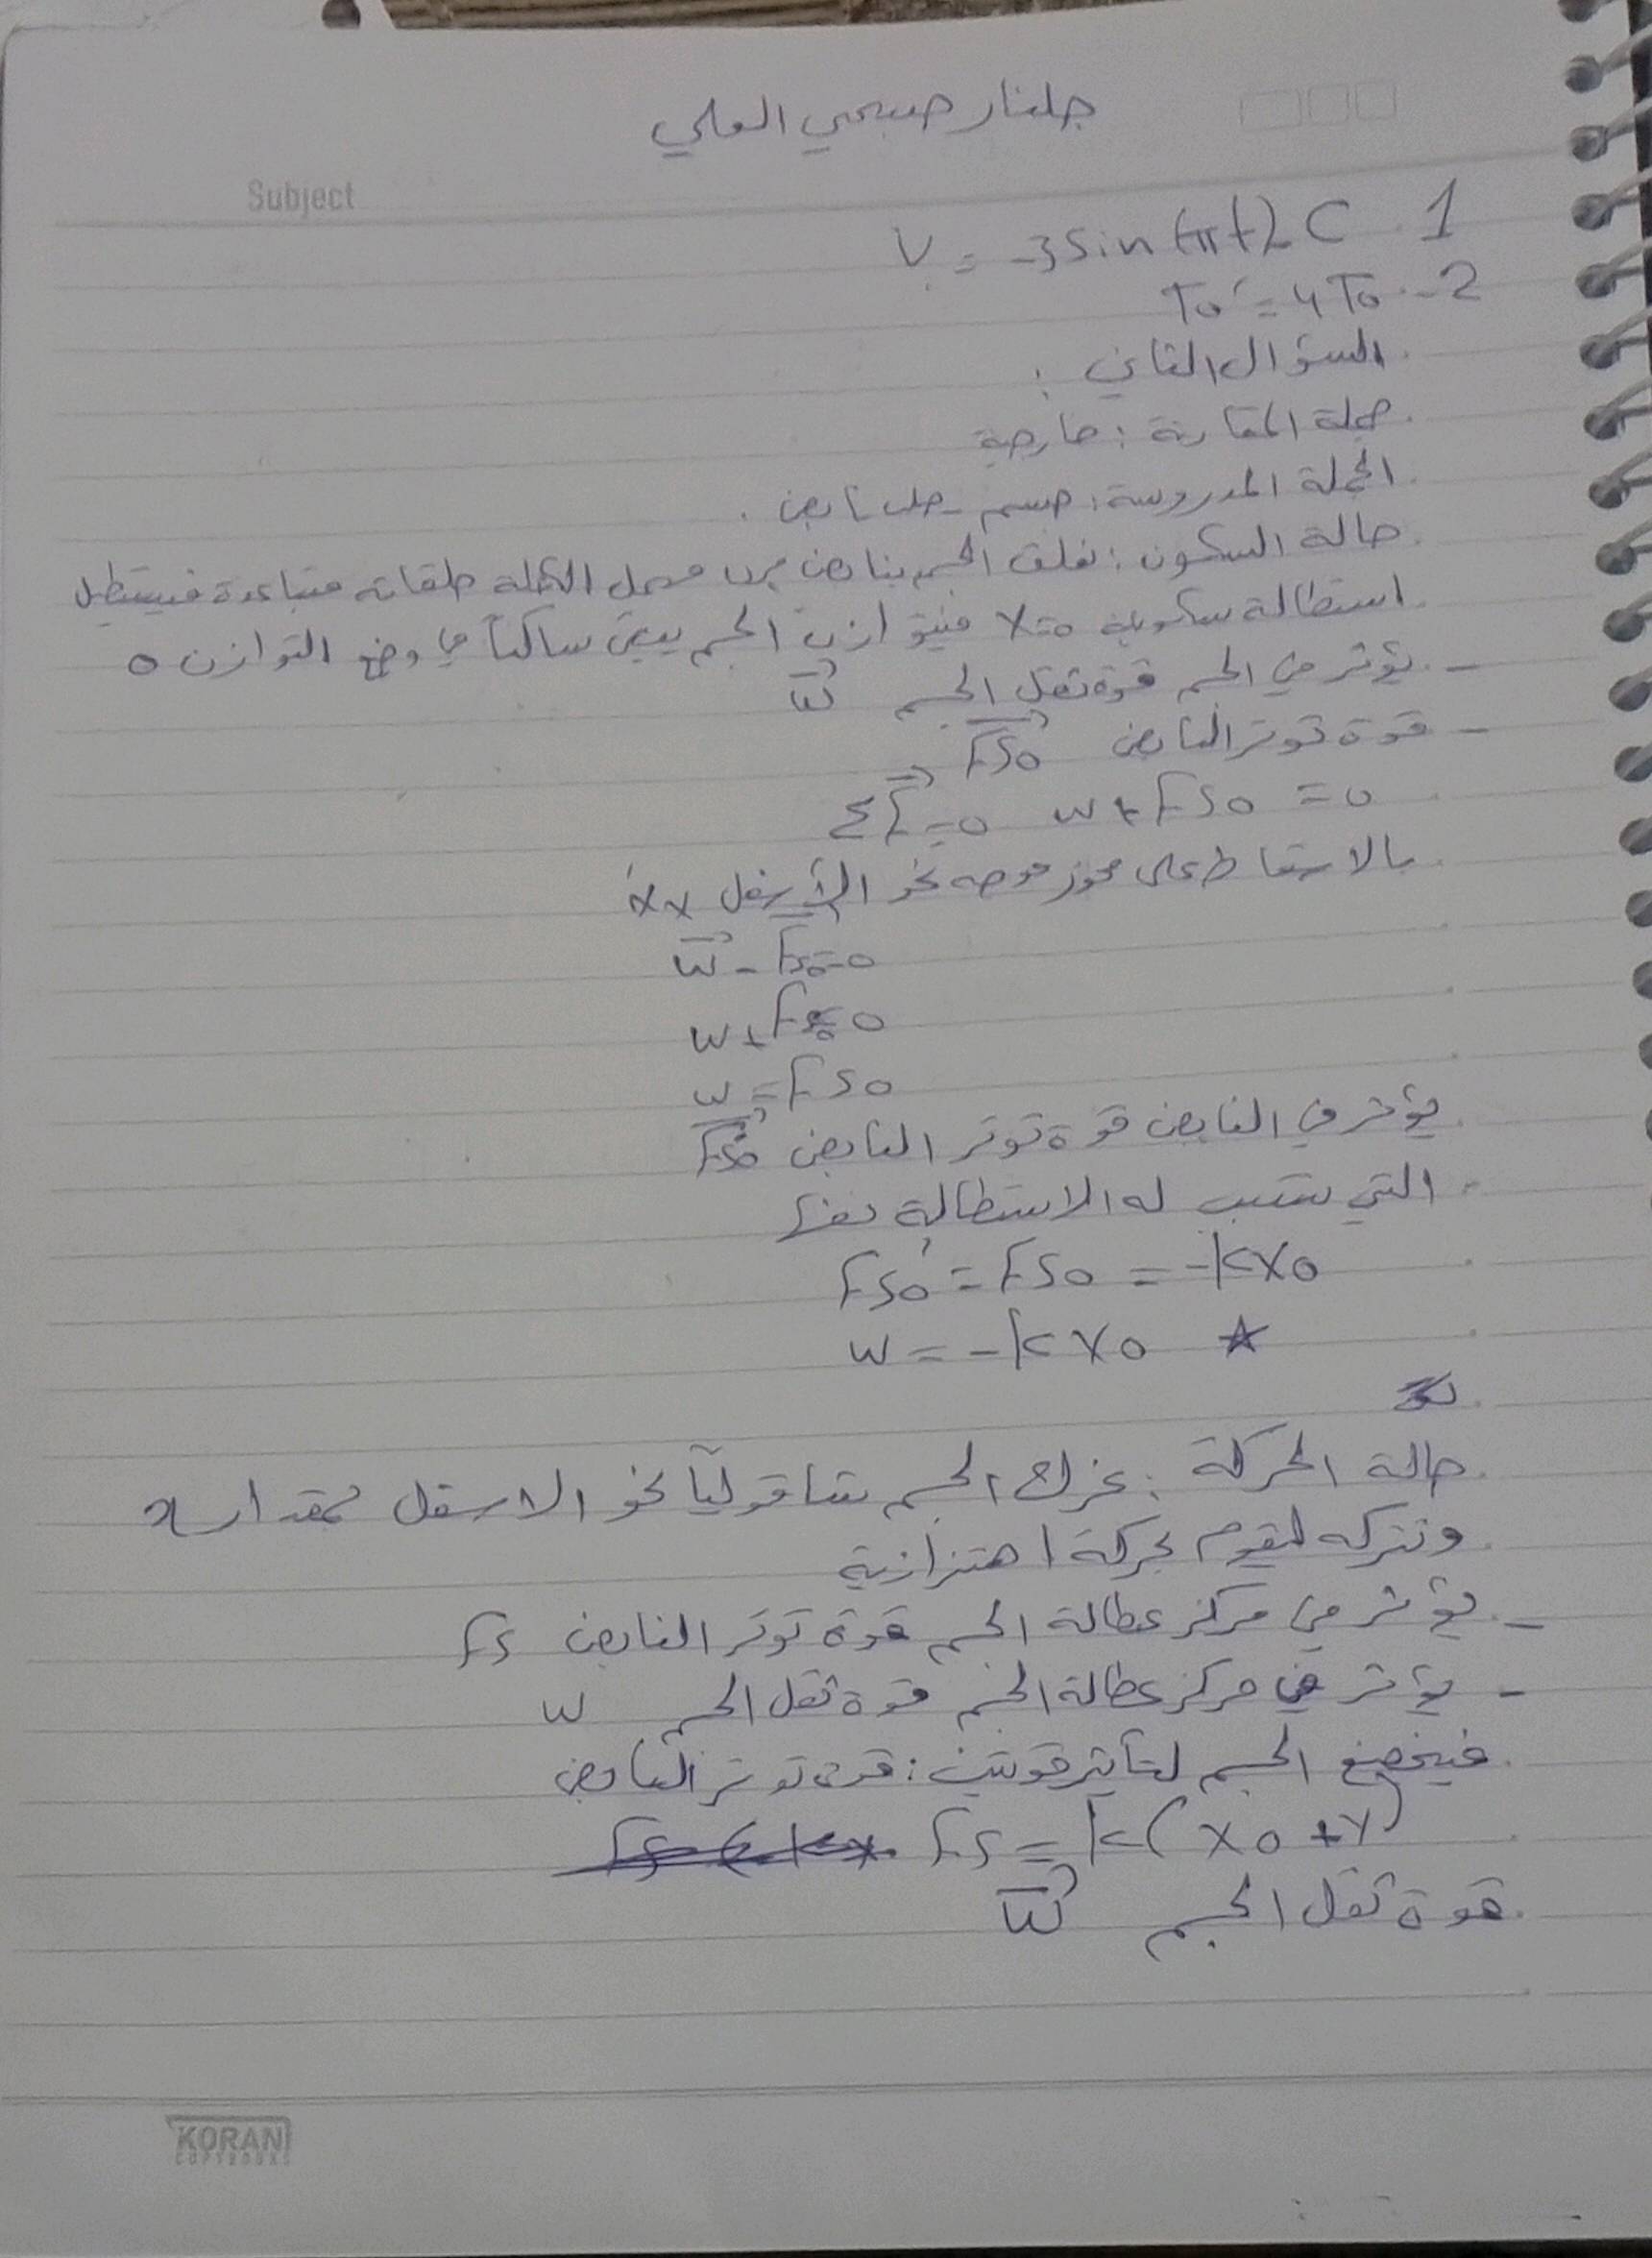 جلنار صبحي العلي
Subject
1. C v = -3 sin(πt)
2- To' = 4To
السؤال الثاني :
جملة المقارنة : خارجية
الجملة المدروسة : جسم صلب نابض .
حالة السكون : نعلق الجسم بنابض مرن مهمل الكتلة حلقاته متباعدة فيستطيل
استطالة سكونية x0 فيتوازن الجسم يبقى ساكناً في وضع التوازن o
- يؤثر في الجسم قوة ثقل الجسم w
- قوة توتر النابض Fs0
ΣF=0 w + Fs0 = 0
بالاسقاط على محور موجه نحو الأسفل xx'
w - Fs0=0
w + Fs0=0
w = Fs0
يؤثر في النابض قوة توتر النابض Fs0'
التي تسبب له الاستطالة نفسها
Fs0' = Fs0 = -kx0
w = -kx0 ☆
حالة الحركة : نحرك الجسم شاقولياً نحو الاسفل بمقدار
ونتركه ليقوم بحركة اهتزازية
- يؤثر في مركز عطالة الجسم قوة توتر النابض Fs
- يؤثر في مركز عطالة الجسم قوة ثقل الجسم w
فيخضع الجسم لتأثير قوتين : قوة توتر النابض
Fs = k(x0 + x)
قوة ثقل الجسم w
KORAN
COPYBOOKS